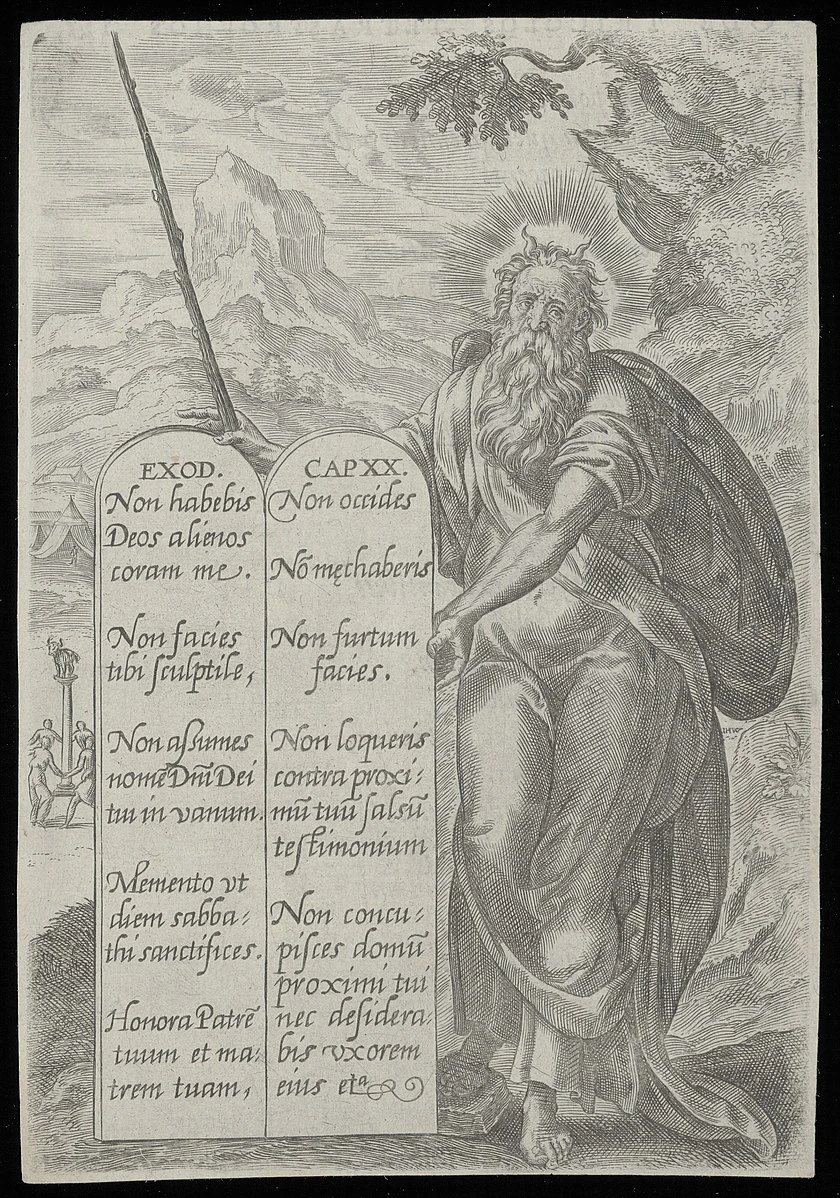 EXOD.
Non habebis
Deos alienos
coram me.
Non facies
tibi sculptile,
Non aſſumes
nomē Dn̄i Dei
tui in vanum.
Memento vt
diem sabba:
thi sanctifices.
Honora Patrē
tuum et ma:
trem tuam,
CAP XX.
Non occides
Nō męchaberis
Non furtum
facies.
Non loqueris
contra proxi:
mū tuū falsū
teſtimonium
Non concu:
piſces domū
proximi tui
nec deſidera:
bis vxorem
eius etᵃ